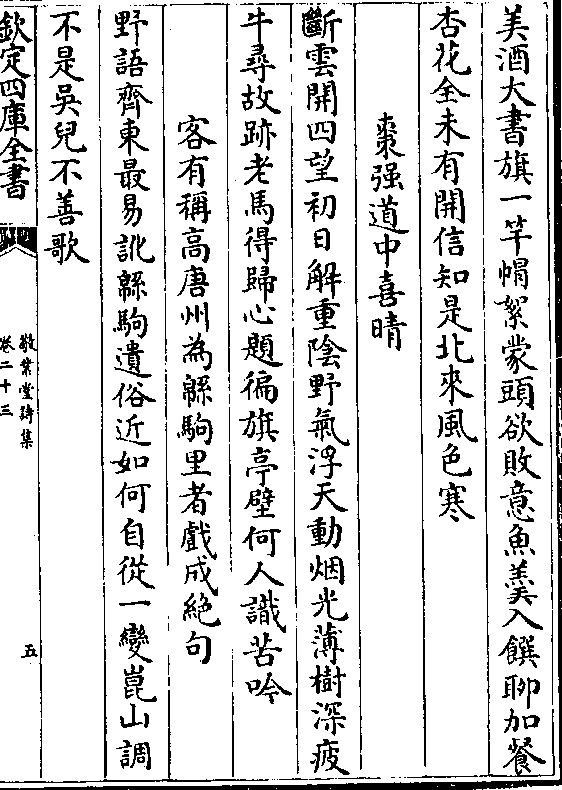 美酒大書旗一竿帽絮蒙頭欲敗意魚羹入饌聊加餐
杏花全未有開信知是北來風色寒
棗强道中喜晴
斷雲開四望初日解重陰野氣浮天動烟光薄樹深疲
牛尋故跡老馬得歸心題徧旗亭壁何人識苦吟
客有稱高唐州為緜駒里者戲成絶句
野語齊東最易訛緜駒遺俗近如何自從一變崑山調
不是吳兒不善歌
欽定四庫全書
敬業堂詩集
卷二十三
五